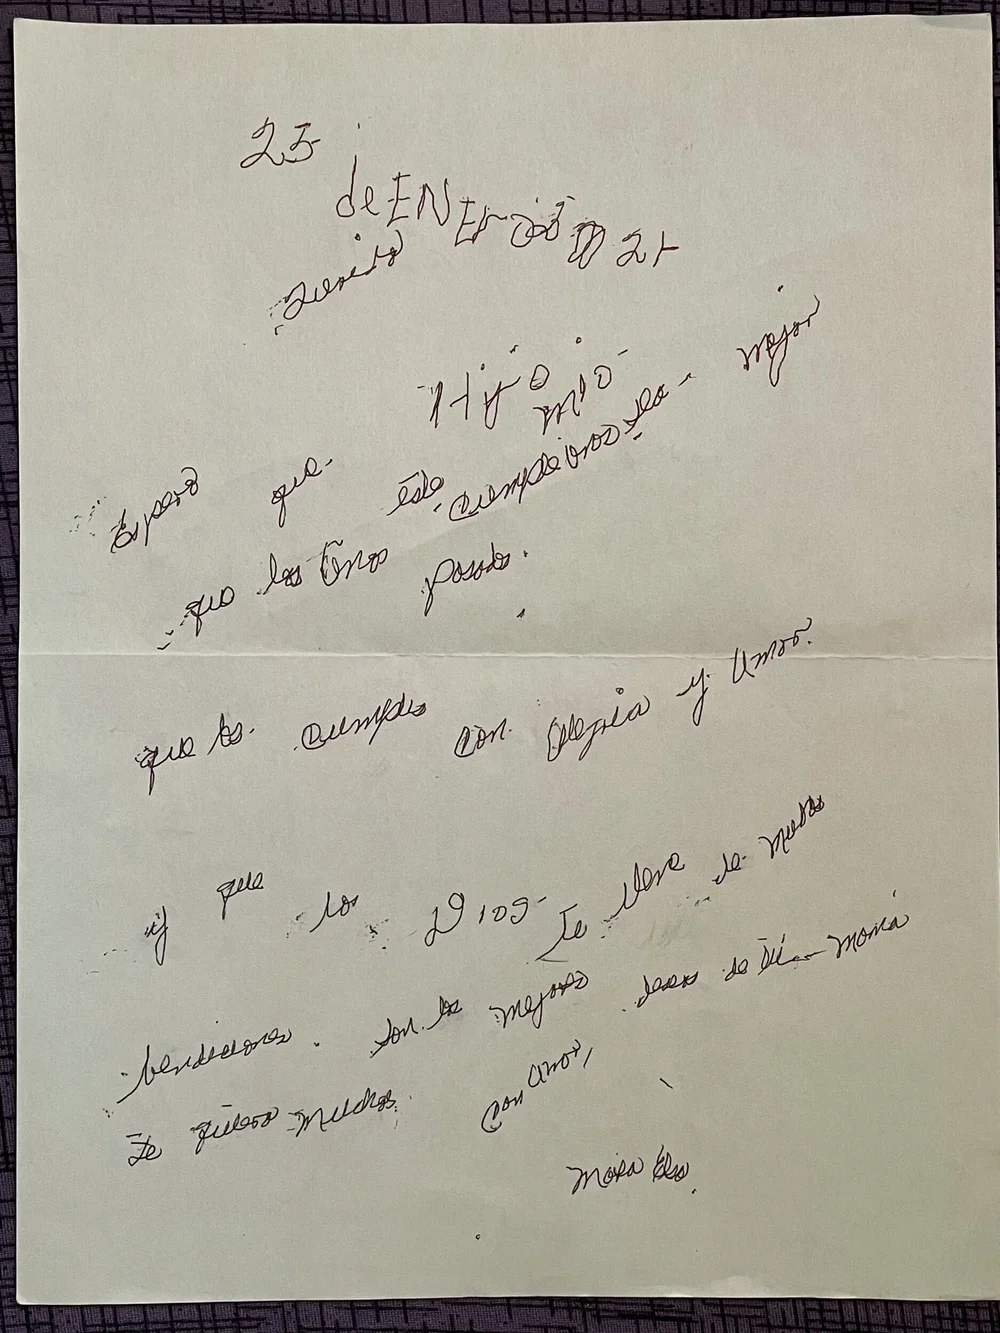 25
de ENEro de 2021
Querido
Hijo
mio
Espero que este cumpleanos sea mejor
que los anos pasados.
que los cumplas con alegria y amor.
y que los Dios te llene de muchas
bendiciones. son los mejores deseos de tú mamá
Te quiero muchos. con amor,
Maria Elsa.